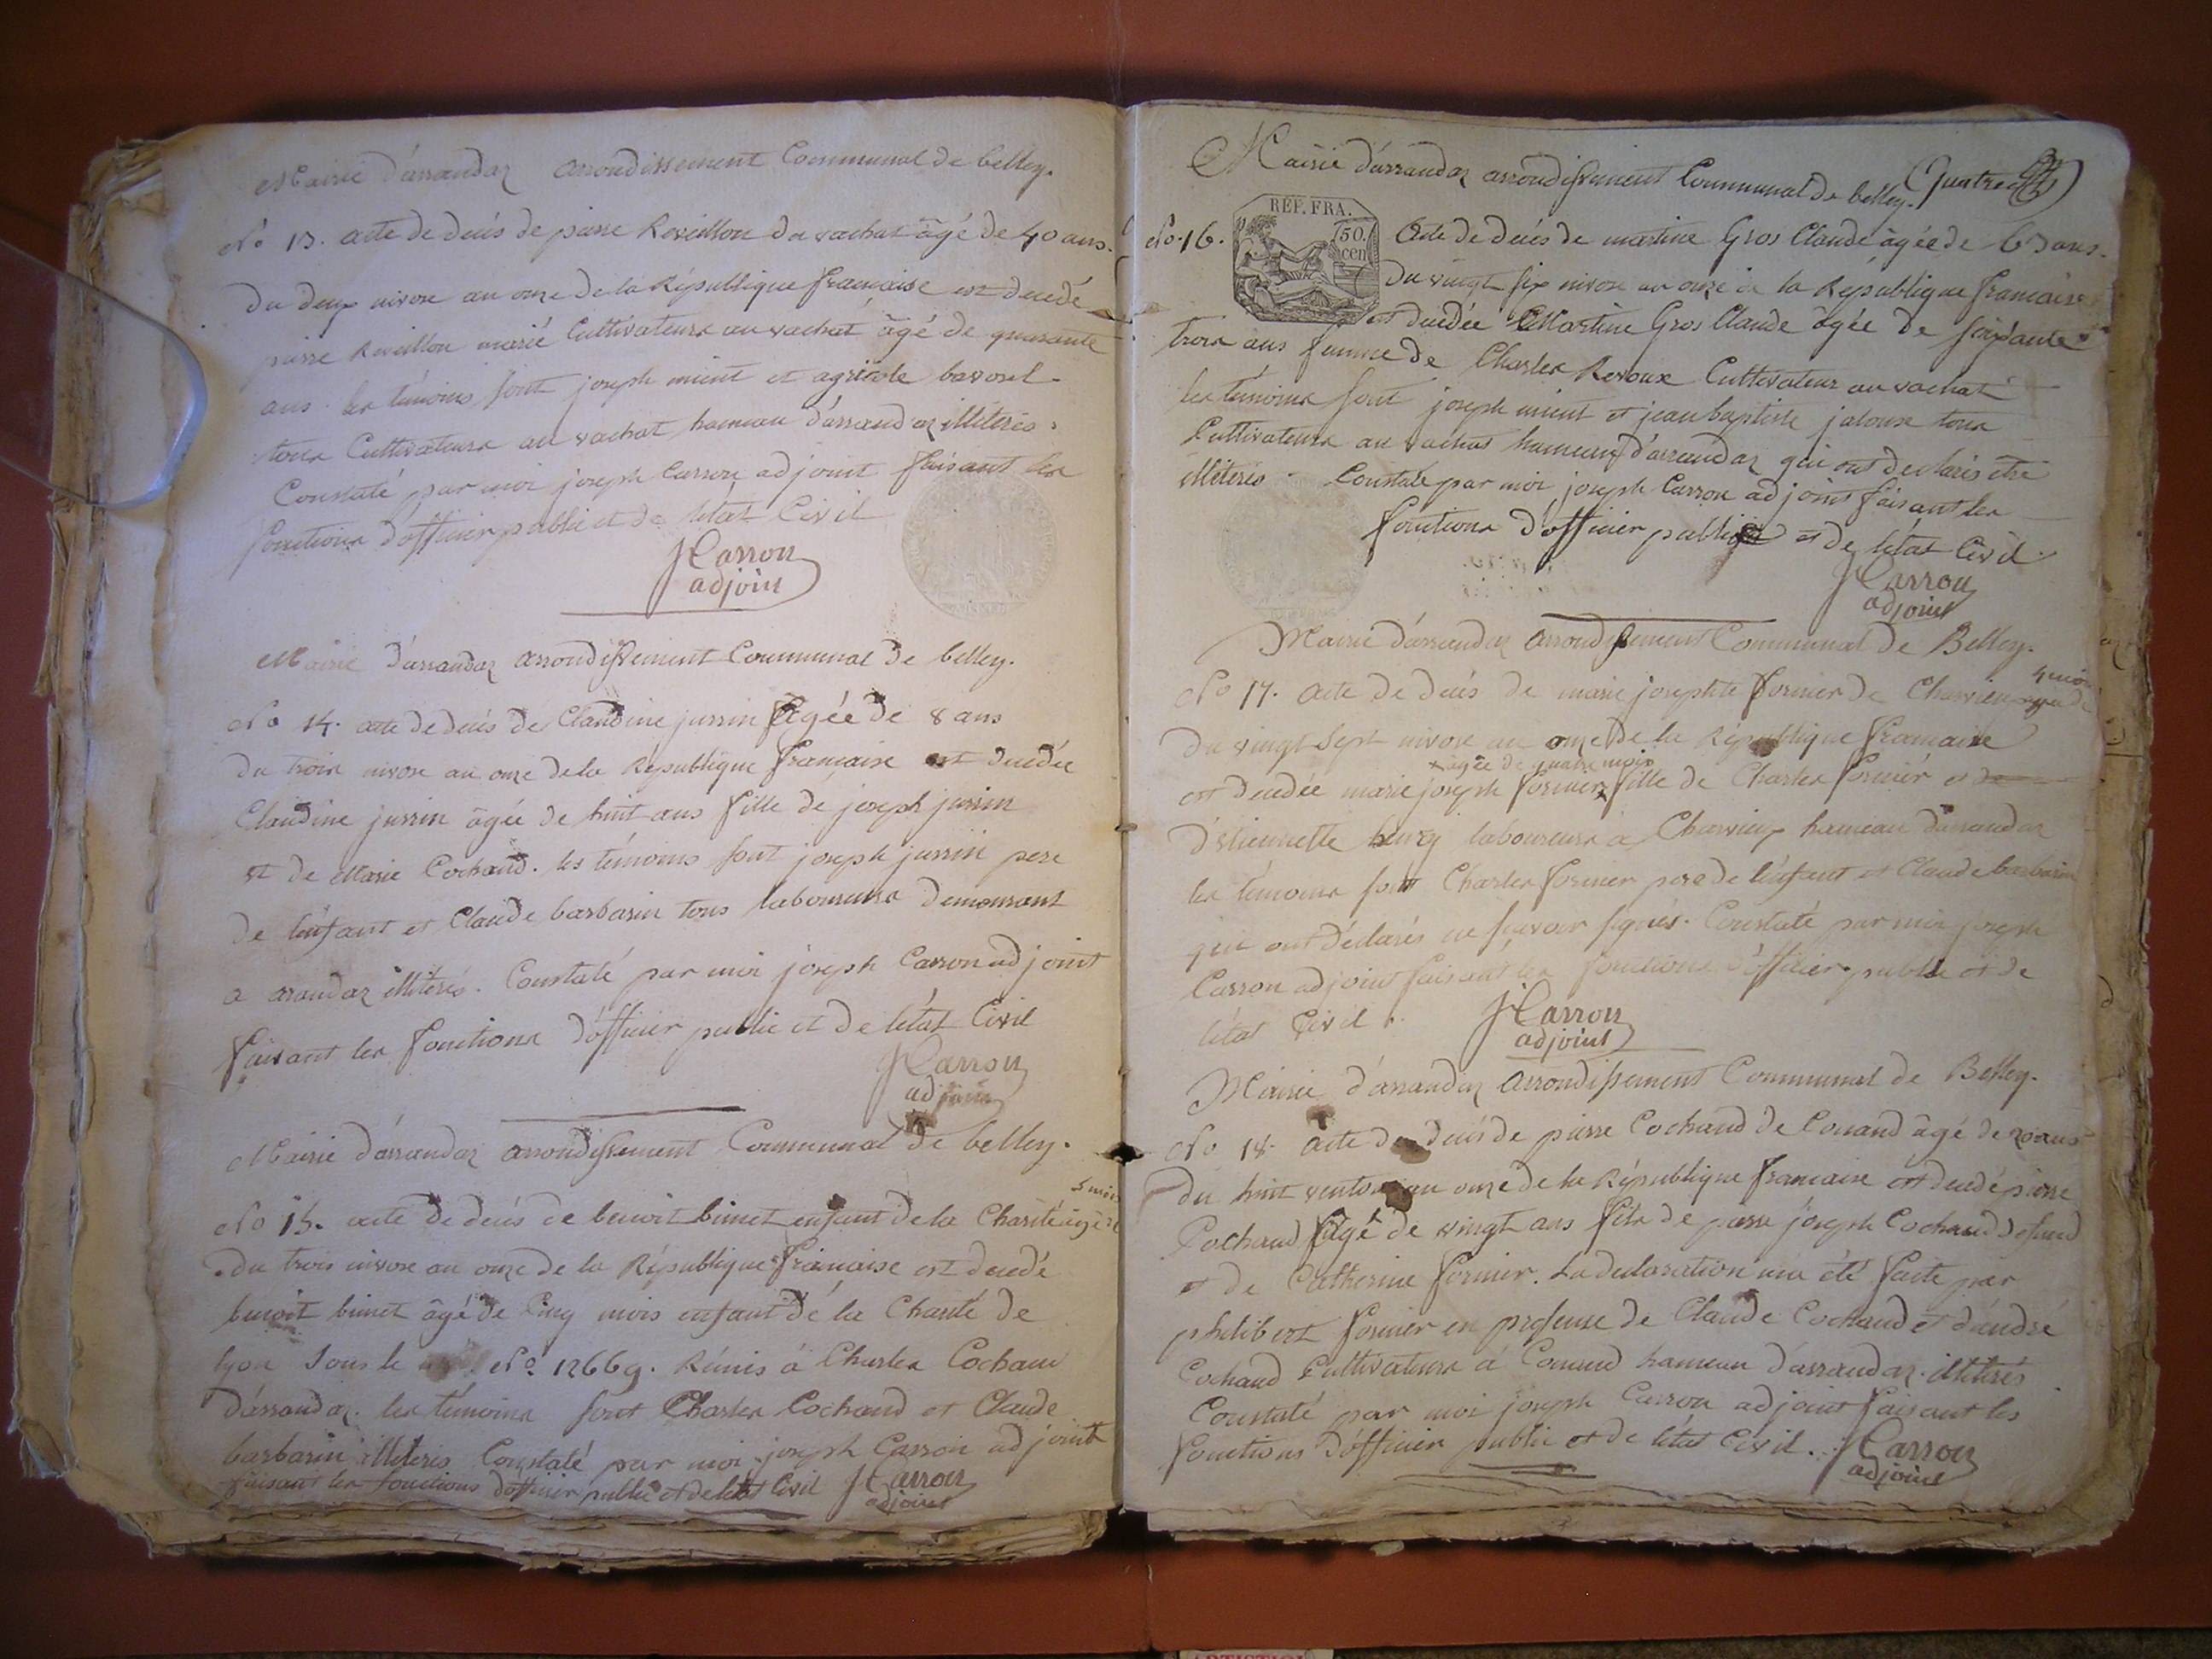 Mairie d'arrandaz arrondissement Communal de belley.
No 13. acte de decés de pierre Reveillon du vachat âgé de 40 ans.
du deux nivose an onze de la République francaise est decedé
pierre Reveillon marié Cultivateura au vachat âgé de quarante
ans. les témoins sont joseph mient et agricole bavosel
tous Cultivateurs au vachat hameau d'arrandaz illiterés.
Constaté par moi joseph Carron adjoint faisant les
fonctions d'officier public et de létat Civil
JCarron
adjoin
Mairie d'arrandaz arrondissement Communal de belley.
No 14. acte de decés de Claudine jussin âgée de 8 ans
du trois nivose an onze de la République francaise est decedée
Claudine jussin âgée de huit ans fille de joseph jussin
et de Marie Cochand. les témoins sont joseph jussin pere
de l'enfant et Claude barbarin tous laboureurs demeurant
a arandaz illiterés. Constaté par moi joseph Carron adjoint
faisant les fonctions d'officier public et de létat Civil
JCarron
adjoint
Mairie d'arrandaz arrondissement Communal de belley.
5 mois
No 15. acte de decés de benoit bimet enfant de la Charité âgé de
du trois nivose an onze de la République francaise est decedé
benoit bimet âgé de Cinq mois enfant de la Charité de
lyon sous le No. 12669. Rémis à Charles Cochand
d'arrandaz. les témoins sont Charles Cochand et Claude
barbarin illiterés Constaté par moi joseph Carron adjoint
faisant les fonctions d'officier public et de létat Civil JCarron
adjoint
Mairie d'arrandaz arrondissement Communal de belley. (quatre
RÉP. FRA.
50.
cen
No. 16. Acte de decés de martine Gros Claude âgée de 63 ans.
du vingt six nivose an onze de la République francaise
est decedée Martine Gros Claude âgée de soixante
trois ans femme de Charles Revoux Cultivateur au vachat
les témoins sont joseph mient et jean baptiste jaloux tous
Cultivateurs au vachat hameau d'arrandaz qui ont declarés etre
illiterés. Constaté par moi joseph Carron adjoint faisant les
fonctions d'officier public et de létat Civil.
JCarron
adjoint
Mairie d'arrandaz arrondissement Communal de Belley.
4 mois
No 17. acte de decés de marie josephte formier de Charvieux agée de
du vingt sept nivose an onze de la République francaise
âgée de quatre mois
est decedée marie joseph formier fille de Charles formier et de
d'étiennette laboureurs à Charvieux hameau d'arrandaz
les témoins sont Charles formier pere de l'enfant et Claude barbarin
qui ont déclarés ne scavoir signés. Constaté par moi joseph
Carron adjoint faisant les fonctions d'officier public et de
létat Civil. JCarron
adjoint
Mairie d'arrandaz arrondissement Communal de Belley.
No 18. acte de decés de pierre Cochand de Conand âgé de 20 ans
du huit ventose an onze de la République francaise est decedé pierre
Cochand âgé de vingt ans fils de pierre joseph Cochand defunt
et de Catherine formier. La declaration m'a été faite par
philibert formier en presence de Claude Cochand et d'andré
Cochand Cultivateurs à Conand hameau d'arrandaz. illiterés
Constaté par moi joseph Carron adjoint faisant les
fonctions d'officier public et de létat Civil. JCarron
adjoint